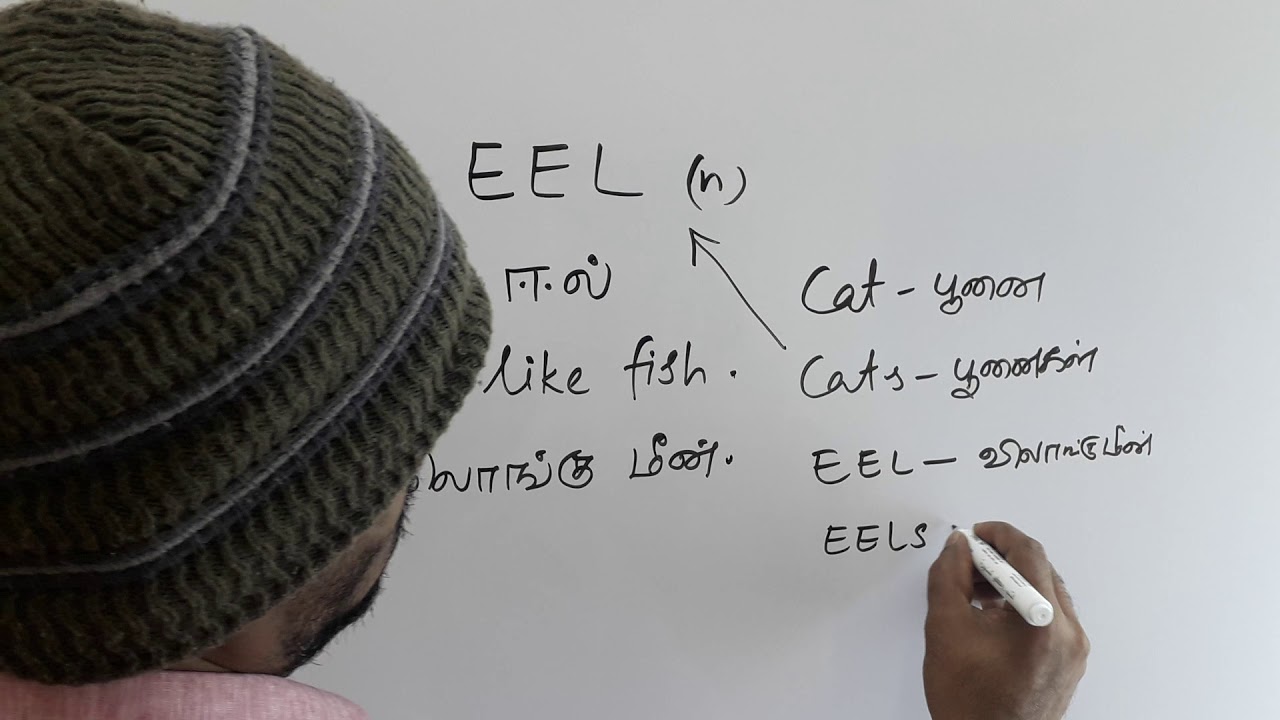 EEL (n)
ஈல்
like fish.
லாங்கு மீன்.
Cat - பூனை
Cats - பூனைகள்
EEL - விலாங்குமீன்
EELS